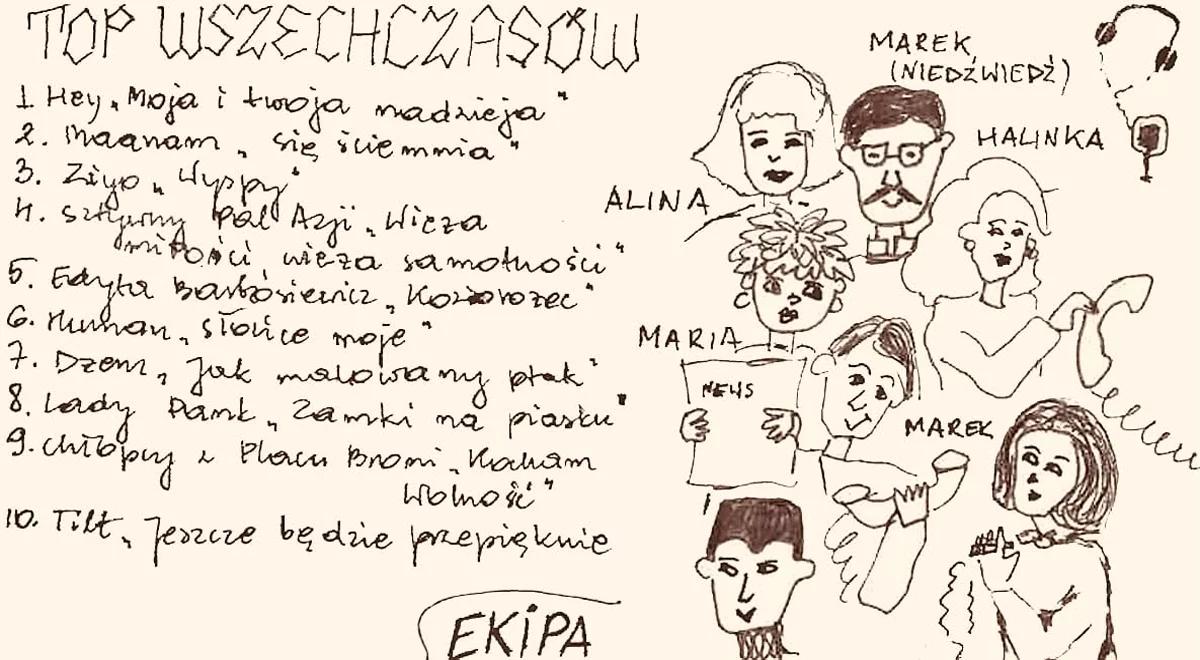 TOP WSZECHCZASÓW
1. Hey „Moja i twoja nadzieja"
2. Maanam „ się ściemnia"
3. Ziyo „Wyspy"
4. Sztywny Pal Azji „Wieża
miłości wieża samotności"
5. Edyta Bartosiewicz „Koziorożec"
6. Human „Słońce moje"
7. Dżem „Jak malowany ptak"
8. Lady Pank „Zamki na piasku"
9. Chłopcy z Placu Broni „Kocham
Wolność"
10. Tilt „Jeszcze będzie przepięknie
EKIPA
MAREK
(NIEDŹWIEDŹ)
HALINKA
ALINA
MARIA
NEWS
MAREK